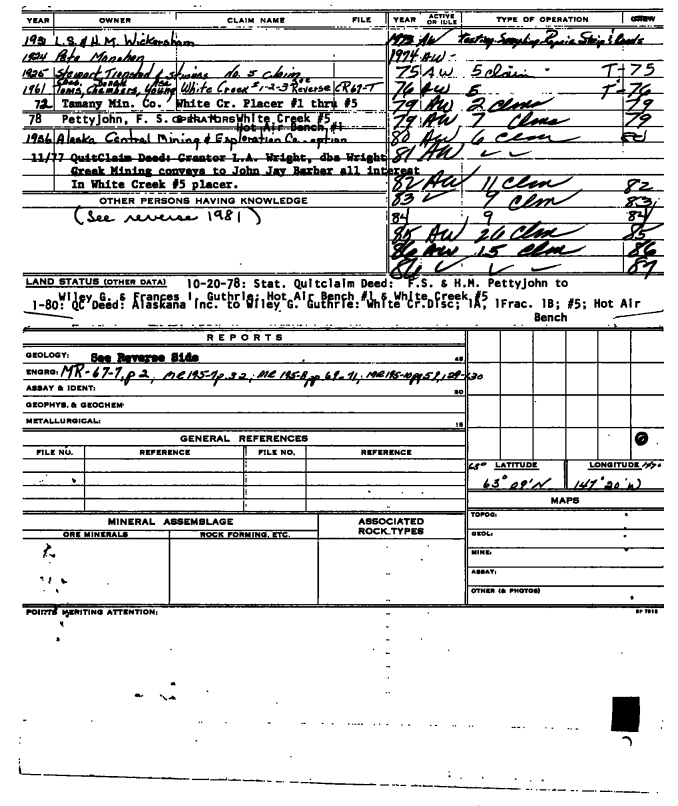 YEAR OWNER CLAIM NAME FILE YEAR ACTIVE OR IDLE TYPE OF OPERATION CREW
1931 L.S. & H.M. Wickersham
1973 AW Testing-Sampling Repair Strip & Roads
1924 Pete Monahan
1974 AW -
1925 Stewart No. 5 claim
75 AW 5 claim - T-75
1961 Toms, Chambers, Young White Creek #1-2-3 See Reverse CR67-T
76 AW 5 T-76
72 Tamany Min. Co. White Cr. Placer #1 thru #5
79 AW 2 clms 79
78 Pettyjohn, F. S. OPERATORS White Creek #5
Hot Air Bench #1
79 AW 7 Clms 79
1936 Alaska Central Mining & Exploration Co. -option
80 AW 6 Clm 80
11/77 QuitClaim Deed: Grantor L.A. Wright, dba Wright
81 AW ✓ ✓
Creek Mining conveys to John Jay Barber all interest
In White Creek #5 placer.
82 AW 11 Clm 82
OTHER PERSONS HAVING KNOWLEDGE
83 ✓ 9 Clm 83
(See reverse 1981)
84 9 84
85 AW 26 Clm 85
86 AW 15 Clm 86
✓ ✓ ✓ 87
LAND STATUS (OTHER DATA) 10-20-78: Stat. Quitclaim Deed: F.S. & H.M. Pettyjohn to
Wiley G. & Frances I. Guthrie: Hot Air Bench #1 & White Creek #5
1-80: QC Deed: Alaskana Inc. to Wiley G. Guthrie: White Cr.Disc; 1A, 1Frac. 1B; #5; Hot Air
Bench
REPORTS
GEOLOGY: See Reverse Side 45
ENGRG: MR-67-7, p 2; MR 195-7 p. 32; MR 195-8, pp 69-71; MR 195-10 pg 59, 129-130
ASSAY & IDENT: 30
GEOPHYS. & GEOCHEM:
METALLURGICAL: 15
GENERAL REFERENCES
FILE NO. REFERENCE FILE NO. REFERENCE
65° LATITUDE LONGITUDE
63° 09' N 147° 20' W
MAPS
MINERAL ASSEMBLAGE ASSOCIATED ROCK TYPES
ORE MINERALS ROCK FORMING, ETC.
TOPOG:
GEOL:
MINE:
ASSAY:
OTHER (& PHOTOS)
POINTS MERITING ATTENTION: